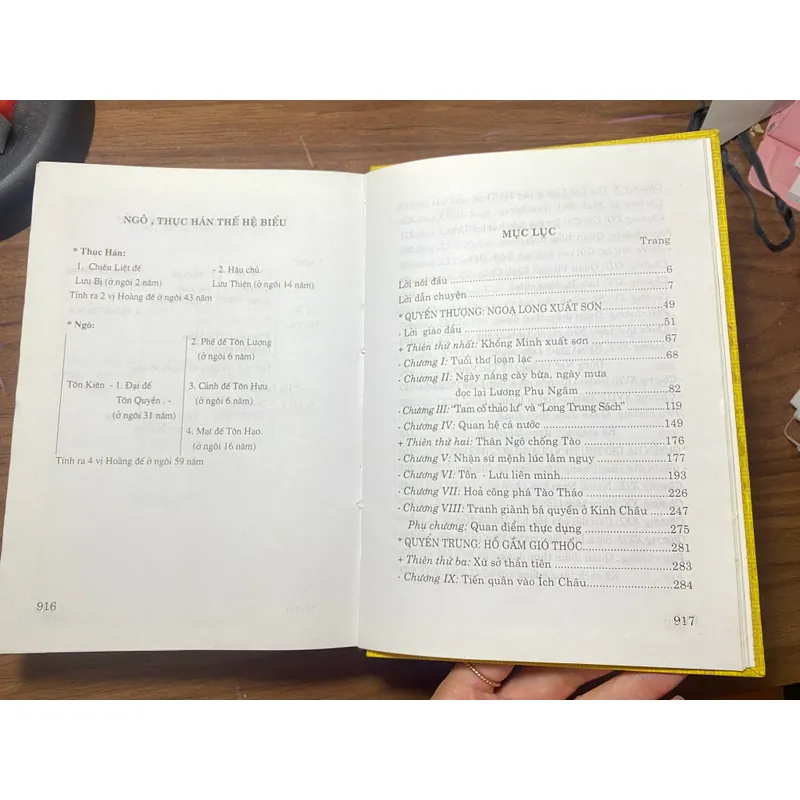 NGÔ , THỤC HÁN THẾ HỆ BIỂU
* Thục Hán:
1. Chiêu Liệt đế - 2. Hậu chủ
Lưu Bị (ở ngôi 2 năm) Lưu Thiện (ở ngôi 14 năm)
Tính ra 2 vị Hoàng đế ở ngôi 43 năm
* Ngô:
2. Phế đế Tôn Lượng
(ở ngôi 6 năm)
Tôn Kiên - 1. Đại đế 3. Cảnh đế Tôn Hưu
Tôn Quyền . - (ở ngôi 6 năm)
(ở ngôi 31 năm)
4. Mạt đế Tôn Hạo.
(ở ngôi 16 năm)
Tính ra 4 vị Hoàng đế ở ngôi 59 năm
916
MỤC LỤC
Trang
Lời nói đầu 6
Lời dẫn chuyện 7
* QUYỂN THƯỢNG: NGỌA LONG XUẤT SƠN 49
- Lời giáo đầu 51
+ Thiên thứ nhất: Khổng Minh xuất sơn 67
- Chương I: Tuổi thơ loạn lạc 68
- Chương II: Ngày nắng cày bừa, ngày mưa
đọc lại Lương Phụ Ngâm 82
- Chương III: "Tam cố thảo lư" và "Long Trung Sách" 119
- Chương IV: Quan hệ cá nước 149
+ Thiên thứ hai: Thân Ngô chống Tào 176
- Chương V: Nhận sứ mệnh lúc lâm nguy 177
- Chương VI: Tôn - Lưu liên minh 193
- Chương VII: Hoả công phá Tào Tháo 226
- Chương VIII: Tranh giành bá quyền ở Kinh Châu 247
Phụ chương: Quan điểm thực dụng 275
* QUYỂN TRUNG: HỔ GẦM GIÓ THỐC 281
+ Thiên thứ ba: Xứ sở thần tiên 283
- Chương IX: Tiến quân vào Ích Châu 284
917